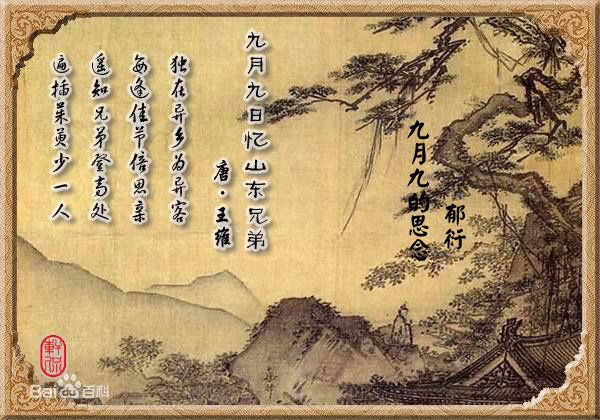 九月九的思念
郁行
九月九日忆山东兄弟
唐·王维
独在异乡为异客
每逢佳节倍思亲
遥知兄弟登高处
遍插茱萸少一人
Bai du 百科